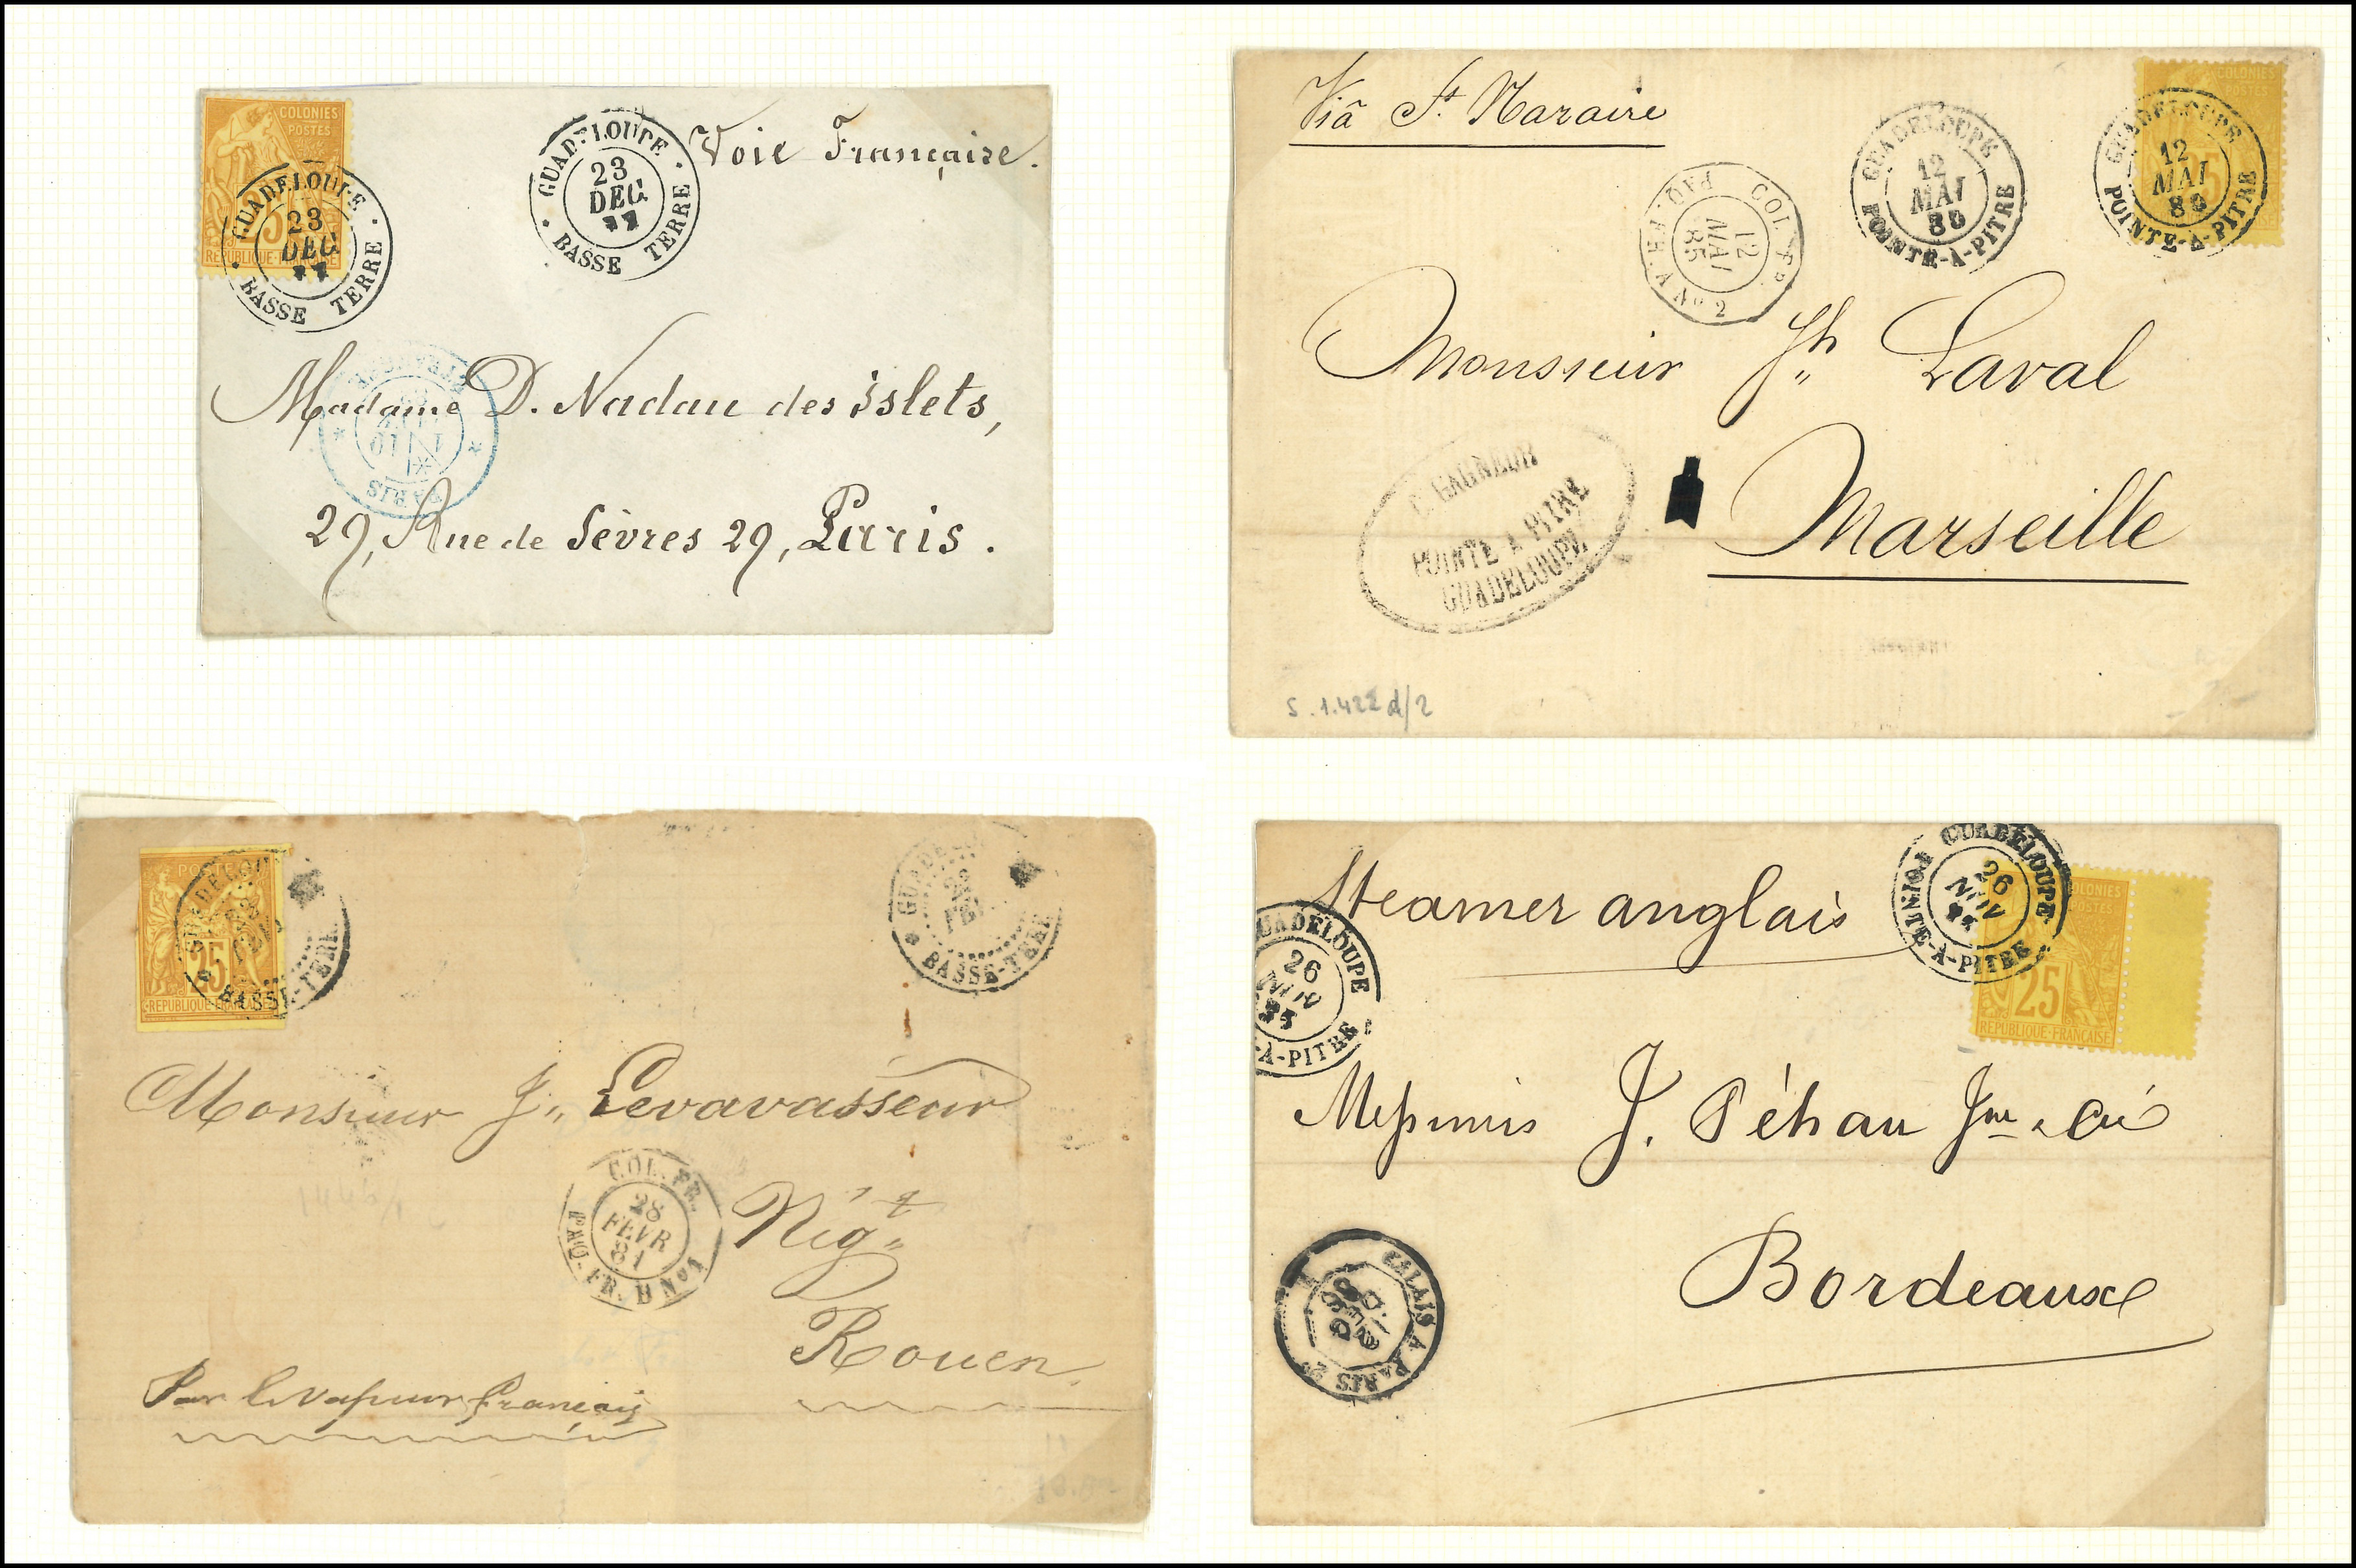 COLONIES
POSTES
25
REPUBLIQUE FRANÇAISE
GUADELOUPE
23
DEC
BASSE TERRE
GUADELOUPE
23
DEC
77
BASSE TERRE
Voie Française.
Madame D. Nadau des islets,
PARIS
29, Rue de Sèvres 29, Paris.
Viâ St Nazaire
COLONIES
POSTES
25
GUADELOUPE
12
MAI
POINTE-A-PITRE
GUADELOUPE
12
MAI
POINTE-A-PITRE
COL. FR.
12
MAI
85
PAQ. FR. A No 2
Monsieur Jh Laval
Marseille
C. GAGNEUR
POINTE A PITRE
GUADELOUPE
S. 1.422 d/2
POSTES
25
REPUBLIQUE FRANÇAISE
GUADELOU
BASSE-TERRE
GUADE
28
FEV
BASSE-TERRE
Monsieur J. Levavasseur
COL. FR.
28
FEVR
81
PAQ. FR. B No 1
Nég.t
Rouen
Par le vapeur français
Steamer anglais
GUADELOUPE
26
NOV
POINTE-A-PITRE
COLONIES
POSTES
25
REPUBLIQUE FRANÇAISE
GUADELOUPE
26
NOV
-A-PITRE
Messieurs J. Péhau Jne & Cie
Bordeaux
CALAIS A PARIS